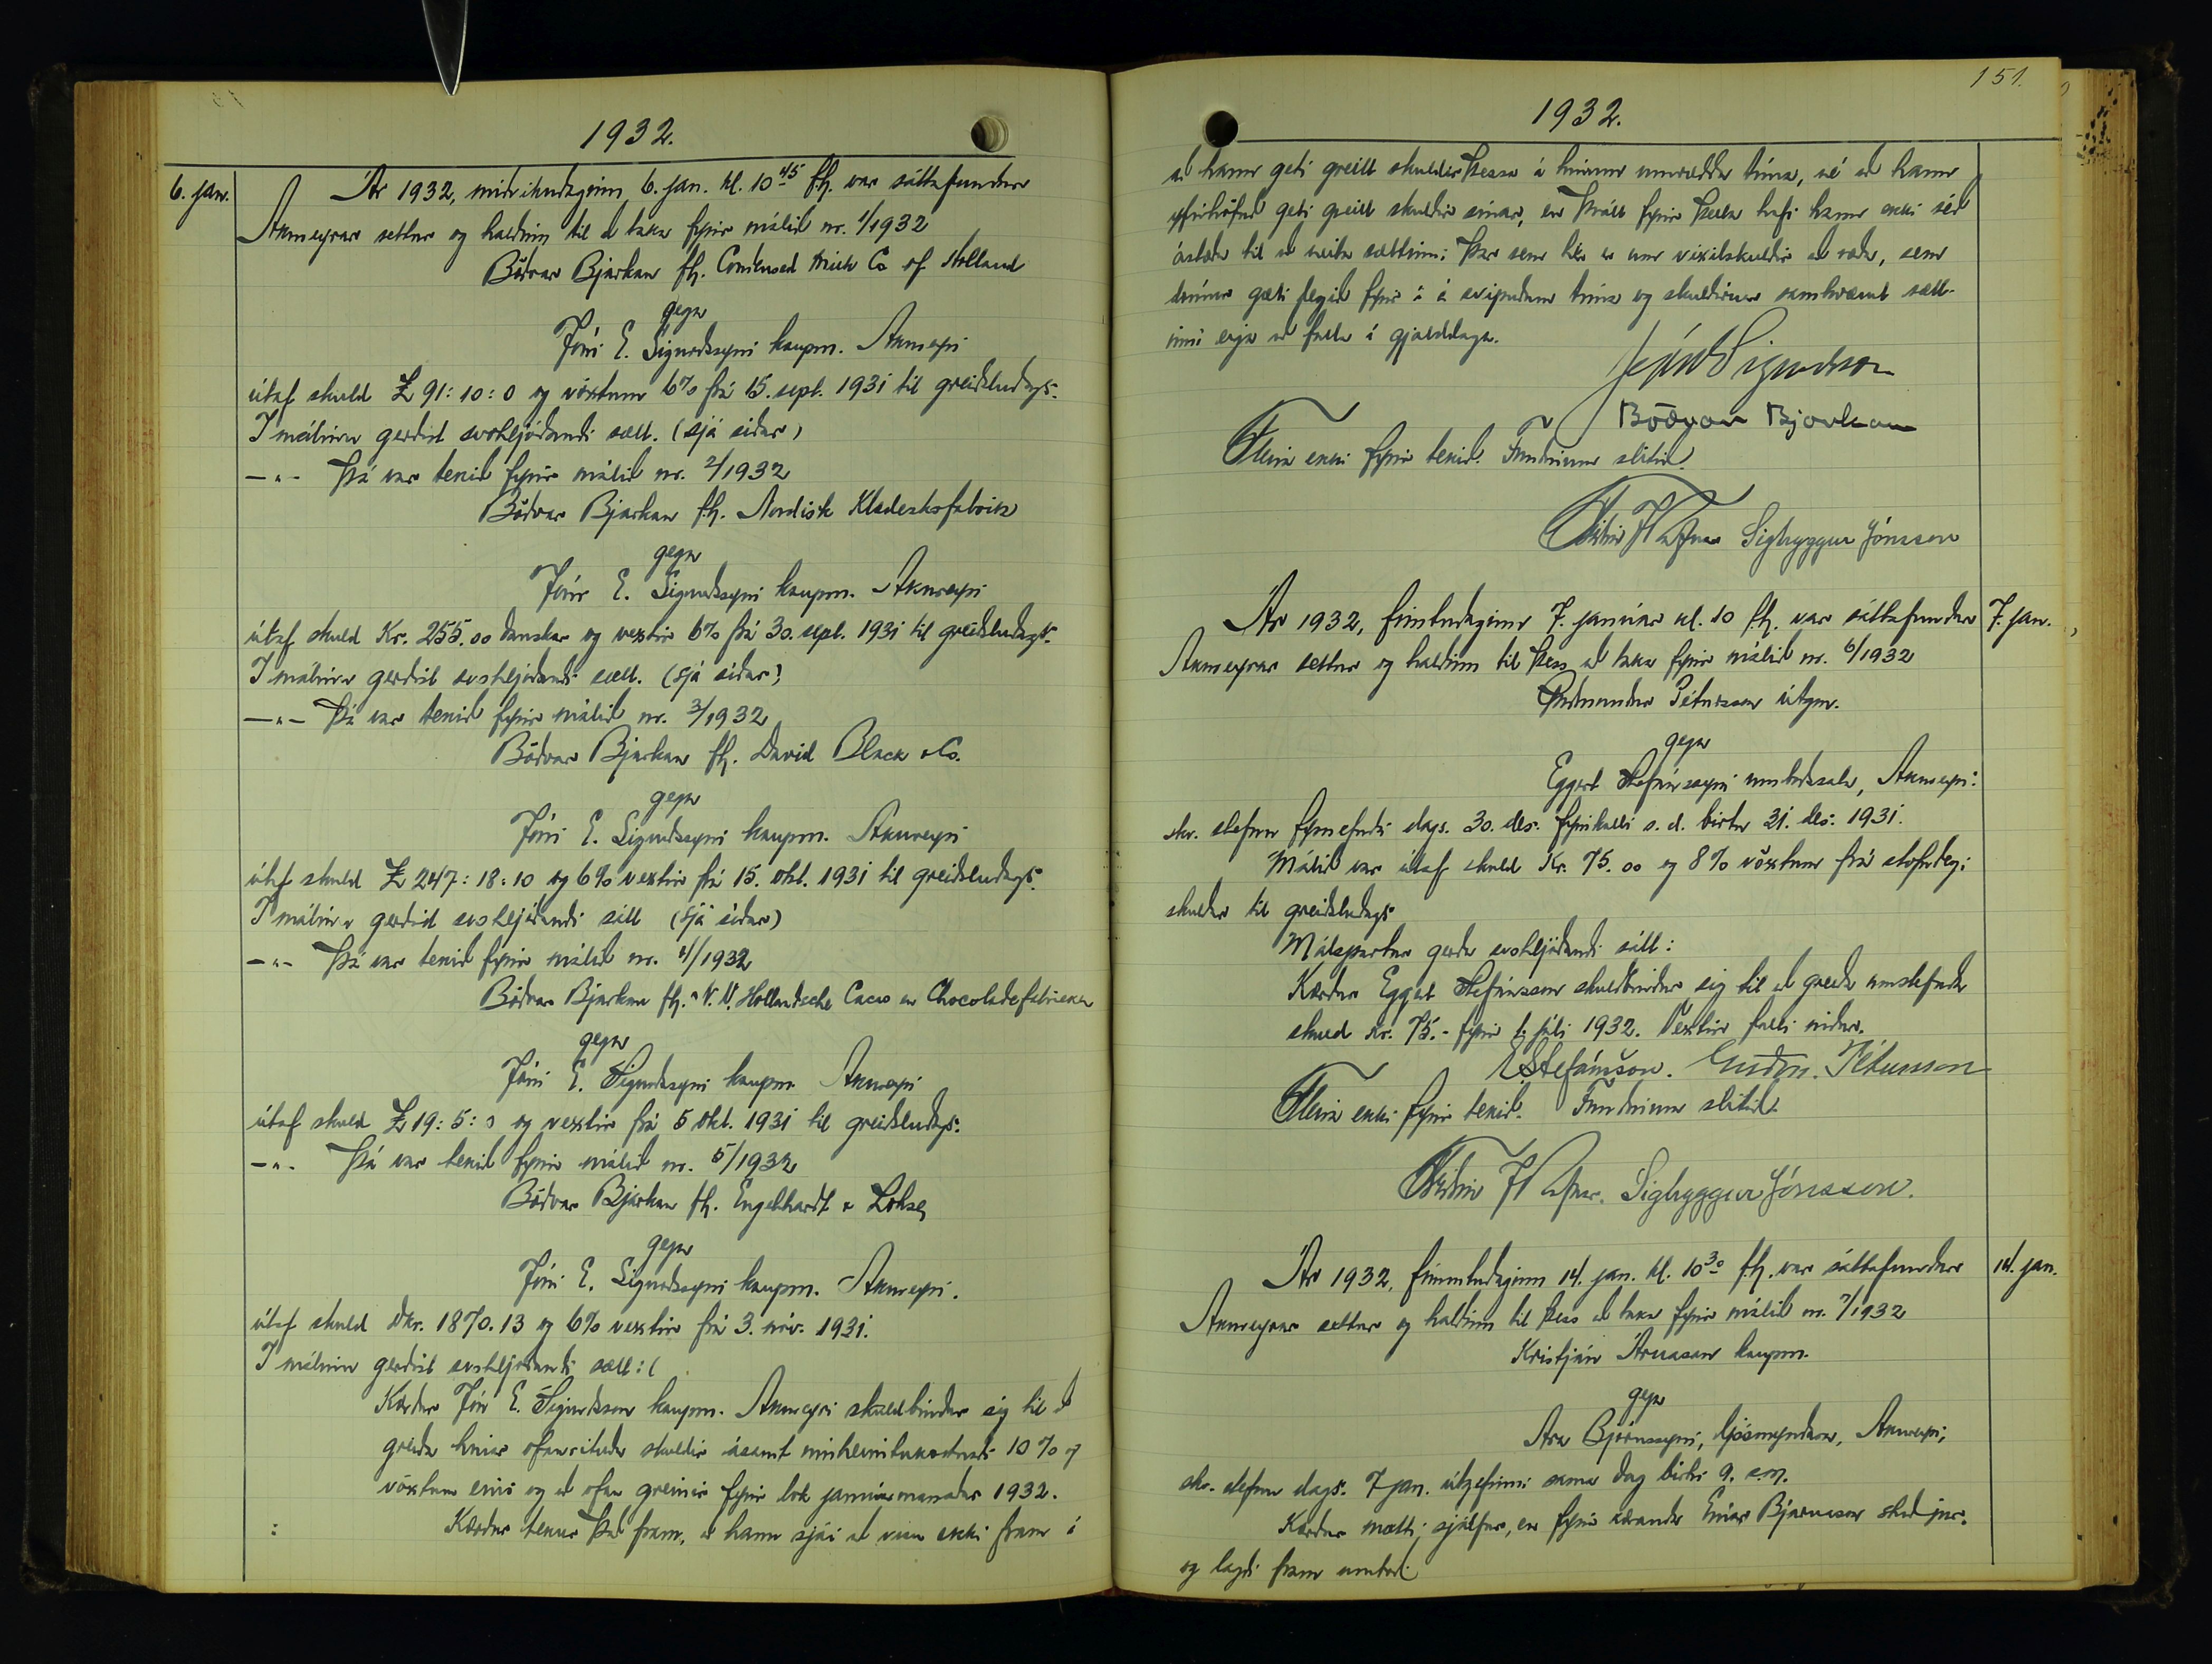 1932.
6. jan.
Ár 1932, miðvikudaginn 6. jan. kl. 10 45 f.h. var sáttafundur
Akureyrar settur og haldinn til að taka fyrir málið nr. 1/1932
Böðvar Bjarkan fh. Condensed Milk Co of Holland
gegn
Jóni E. Sigurðssyni kaupm. Akureyri
útaf skuld £ 91:10:0 og vöxtum 6% frá 15. sept. 1931 til greiðsludags.
Í málinu gerðist svohljóðandi sætt. (sjá síðar)
-"- Þá var tekið fyrir málið nr. 2/1932
Böðvar Bjarkan f.h. Nordisk Kladeskofabrik
gegn
Jóni E. Sigurdssyni kaupm. Akureyri
útaf skuld Kr. 255.00 danskar og vextir 6% frá 30. sept. 1931 til greiðsludags.
Í málinu gerðist svohljóðandi sætt. (sjá síðar)
-"- Þá var tekið fyrir málið nr. 3/1932
Böðvar Bjarkan fh. David Black & Co.
gegn
Jóni E. Sigurdssyni kaupm. Akureyri
útaf skuld £ 247:18:10 og 6% vextir frá 15. okt. 1931 til greiðsludags.
Í málinu gerðist svohljóðandi sátt (sjá síðar)
-"- Þá var tekið fyrir málið nr. 4/1932
Böðvar Bjarkan fh. N.V. Hollandsche Cacao en Chocoladefabrieken
gegn
Jóni E. Sigurdssyni kaupm. Akureyri
útaf skuld £ 19:5:0 og vextir frá 5 okt. 1931 til greiðsludags.
-"- Þá var tekið fyrir málið nr. 5/1932
Böðvar Bjarkan fh. Engelhardt & Lohse
gegn
Jóni E. Sigurðssyni kaupm. Akureyri.
útaf skuld Dkr. 1870.13 og 6% vextir frá 3. nóv. 1931.
Í málinu gerðist svohljóðandi sætt: (
Kærður Jón E. Sigurdsson kaupm. Akureyri skuldbindur sig til að
greiða hinar ofanrituðu skuldir ásamt innheimtukostnaði 10% og
vöxtum eins og að ofan greinir fyrir lok janúarmánaðar 1932.
Kærður tekur það fram, að hann sjái að vísu ekki fram á
151.
1932.
að hann geti greitt skuldir þessar á hinum umrædda tíma, né að hann
yfirhöfuð geti greitt skuldir sínar, en þrátt fyrir þetta hafi hann ekki séð
ástæðu til að neita sættinni þar sem hér er um víxilskuldir að ræða, sem
dómur gæti fengið fyrir á svipuðum tíma og skuldirnar samkvæmt sætt-
inni eiga að falla í gjalddaga.
Jón E Sigurdsson
Böðvar Bjarkan
Fleira ekki fyrir tekið. Fundinum slitið.
Sigtryggur Jónsson
7. jan.
Ár 1932, fimtudaginn 7. janúar kl. 10 f.h. var sáttafundur
Akureyrar settur og haldinn til þess að taka fyrir málið nr. 6/1932
Guðmundur Pétursson útgm.
gegn
Eggert Stefánssyni umboðssala, Akureyri:
skv. stefnu dags. 30. des. fyrirkalli s. d. birtu 31. des. 1931.
Málið var útaf skuld Kr. 75.00 og 8% vöxtum frá stofndegi
skuldar til greiðsludags
Málspartar gerðu svohljóðandi sátt:
Kærður Eggert Stefánsson skuldbindur sig til að greiða umstefnda
skuld kr. 75.- fyrir 1. júlí 1932. Vextir falli niður.
E Stefánsson. Guðm. Pétursson
Fleira ekki fyrir tekið. Fundinum slitið.
Sigtryggur Jónsson.
14. jan.
Ár 1932, fimmtudaginn 14. jan. kl. 10 30 f.h. var sáttafundur
Akureyrar settur og haldinn til þess að taka fyrir málið nr. 7/1932
Kristján Árnason kaupm.
gegn
Ara Björnssyni, ljósmyndara, Akureyri,
skv. stefnu dags. 7 jan. útgefinni sama dag birtri 9. s.m.
Kærður mætti sjálfur, en fyrir kæranda Einar Bjarnason stud jur.
og lagði fram umboð